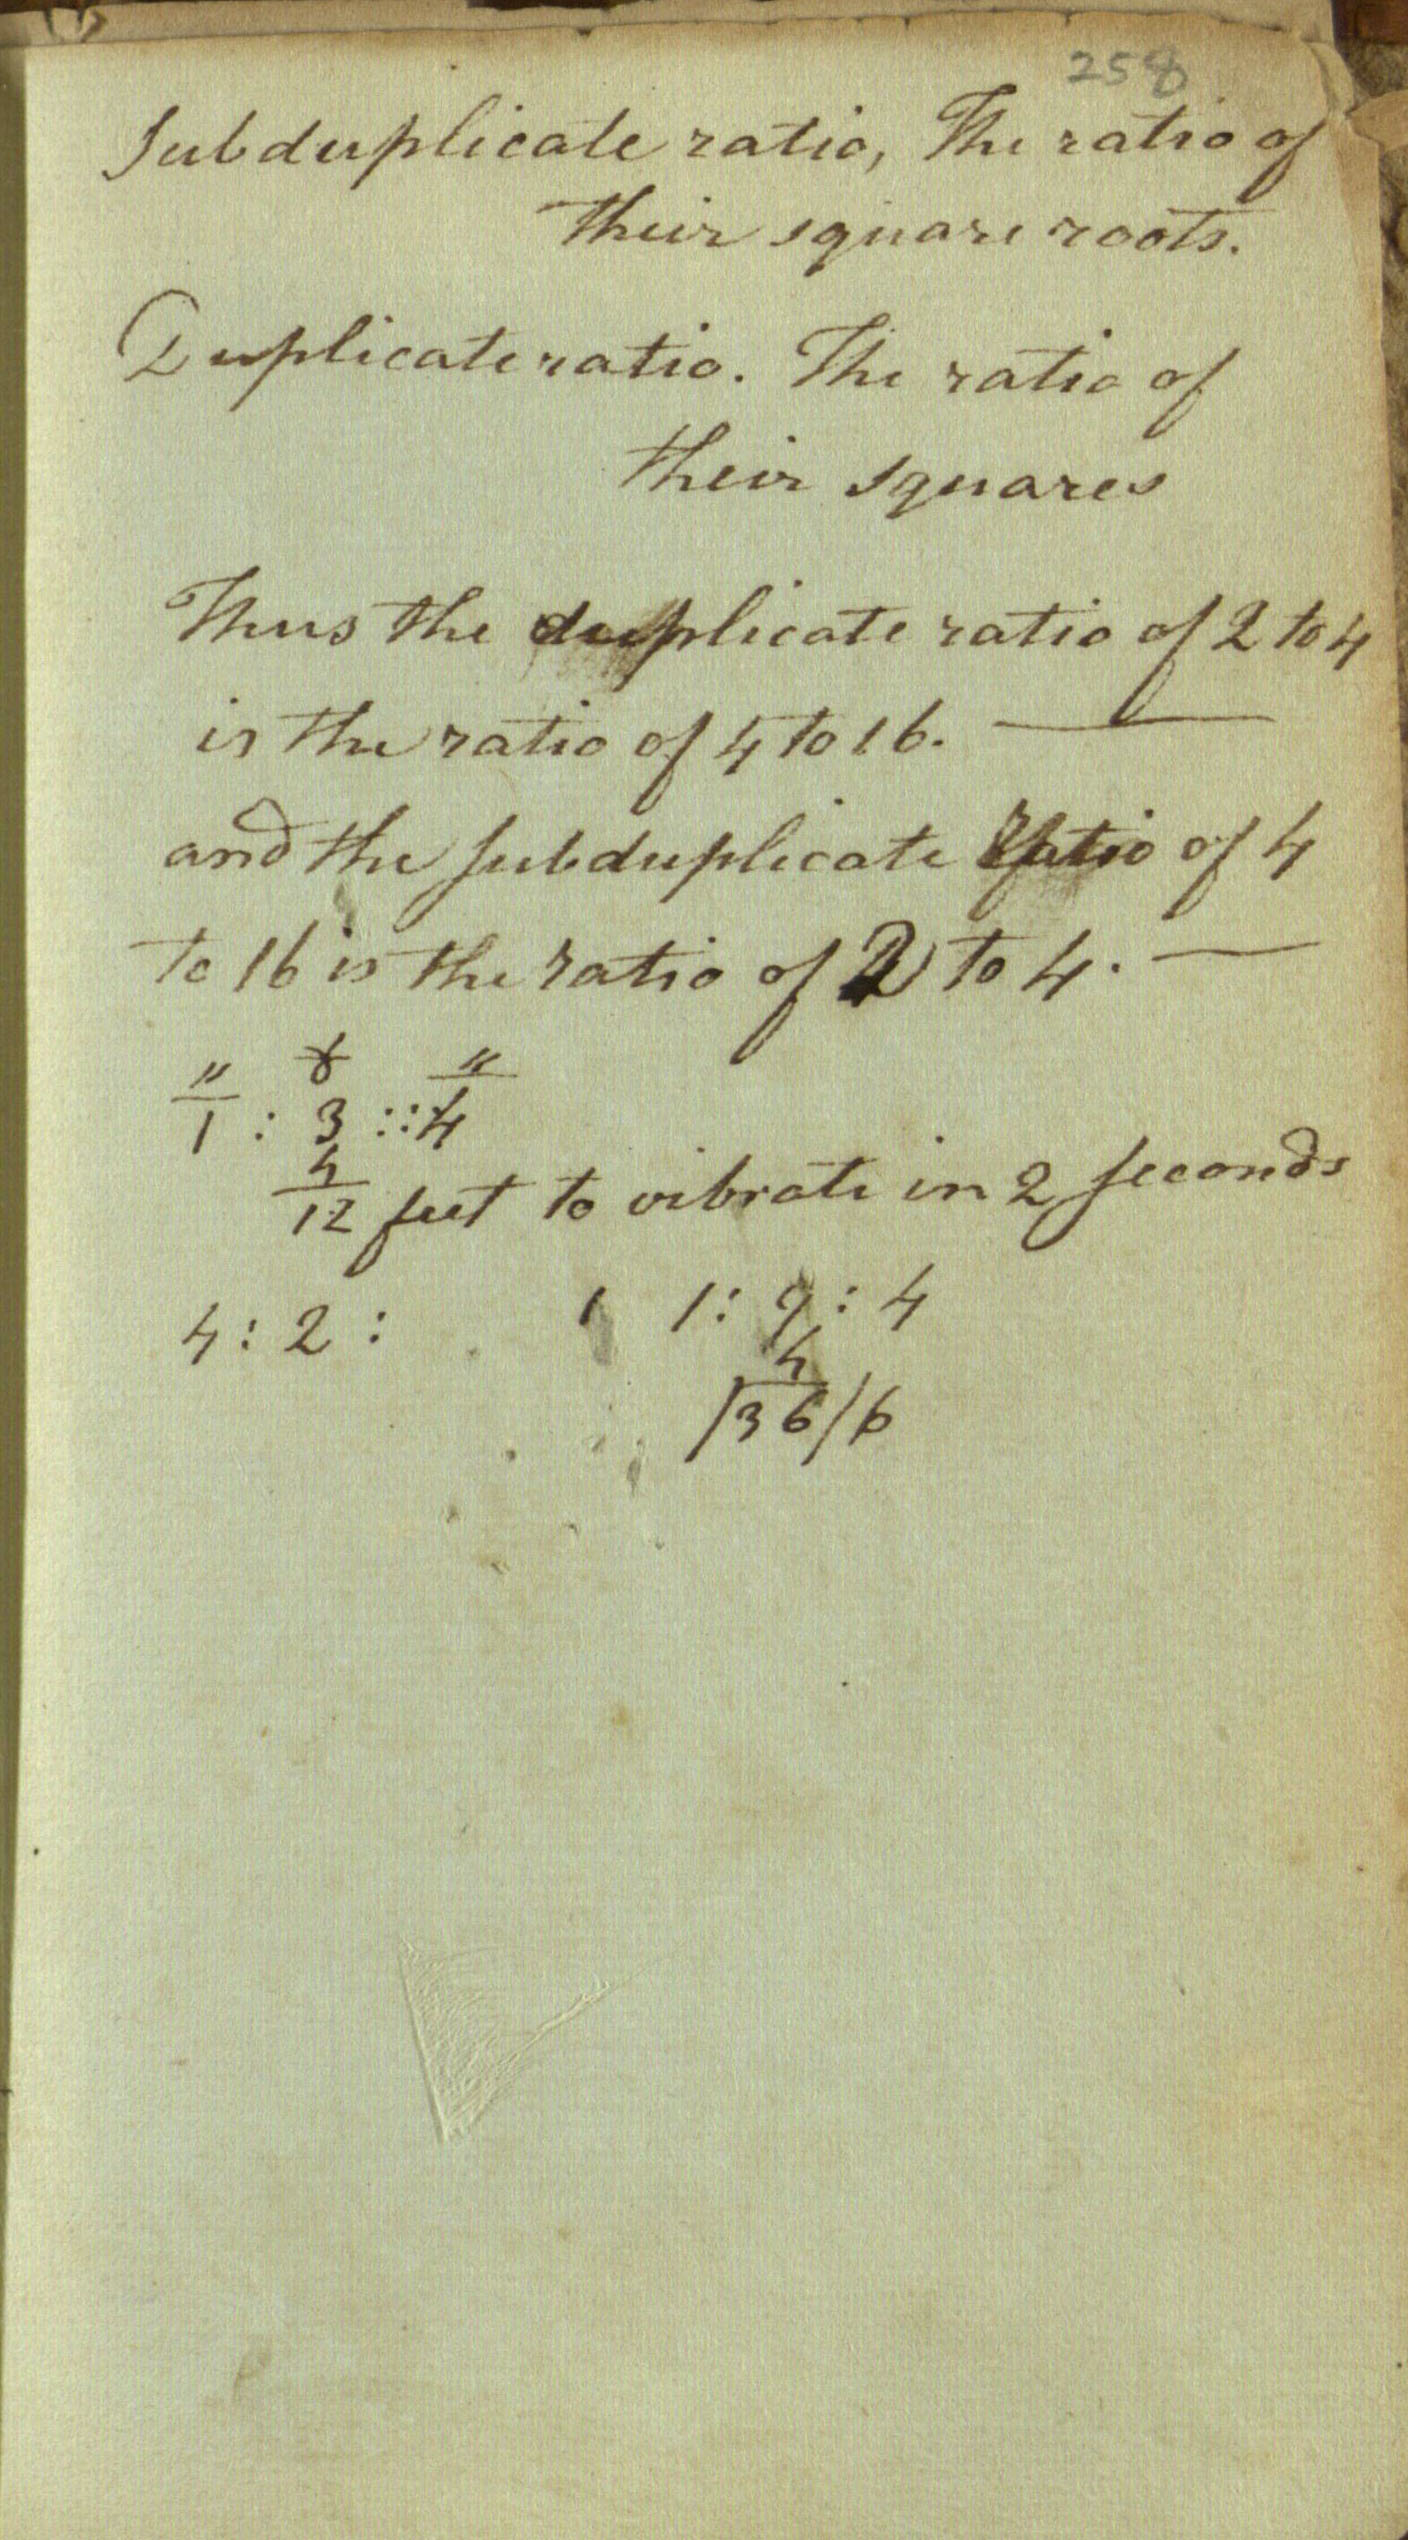 258
Subduplicate ratio, The ratio of
their square roots.
Duplicate ratio. The ratio of
their squares
Thus the duplicate ratio of 2 to 4
is the ratio of 4 to 16. —
and the subduplicate ratio of 4
to 16 is the ratio of 2 to 4. —
" "
1 : 3 :: 4
4
12 feet to vibrate in 2 seconds
4 : 2 : 1 1 : 9 : 4
4
36/6